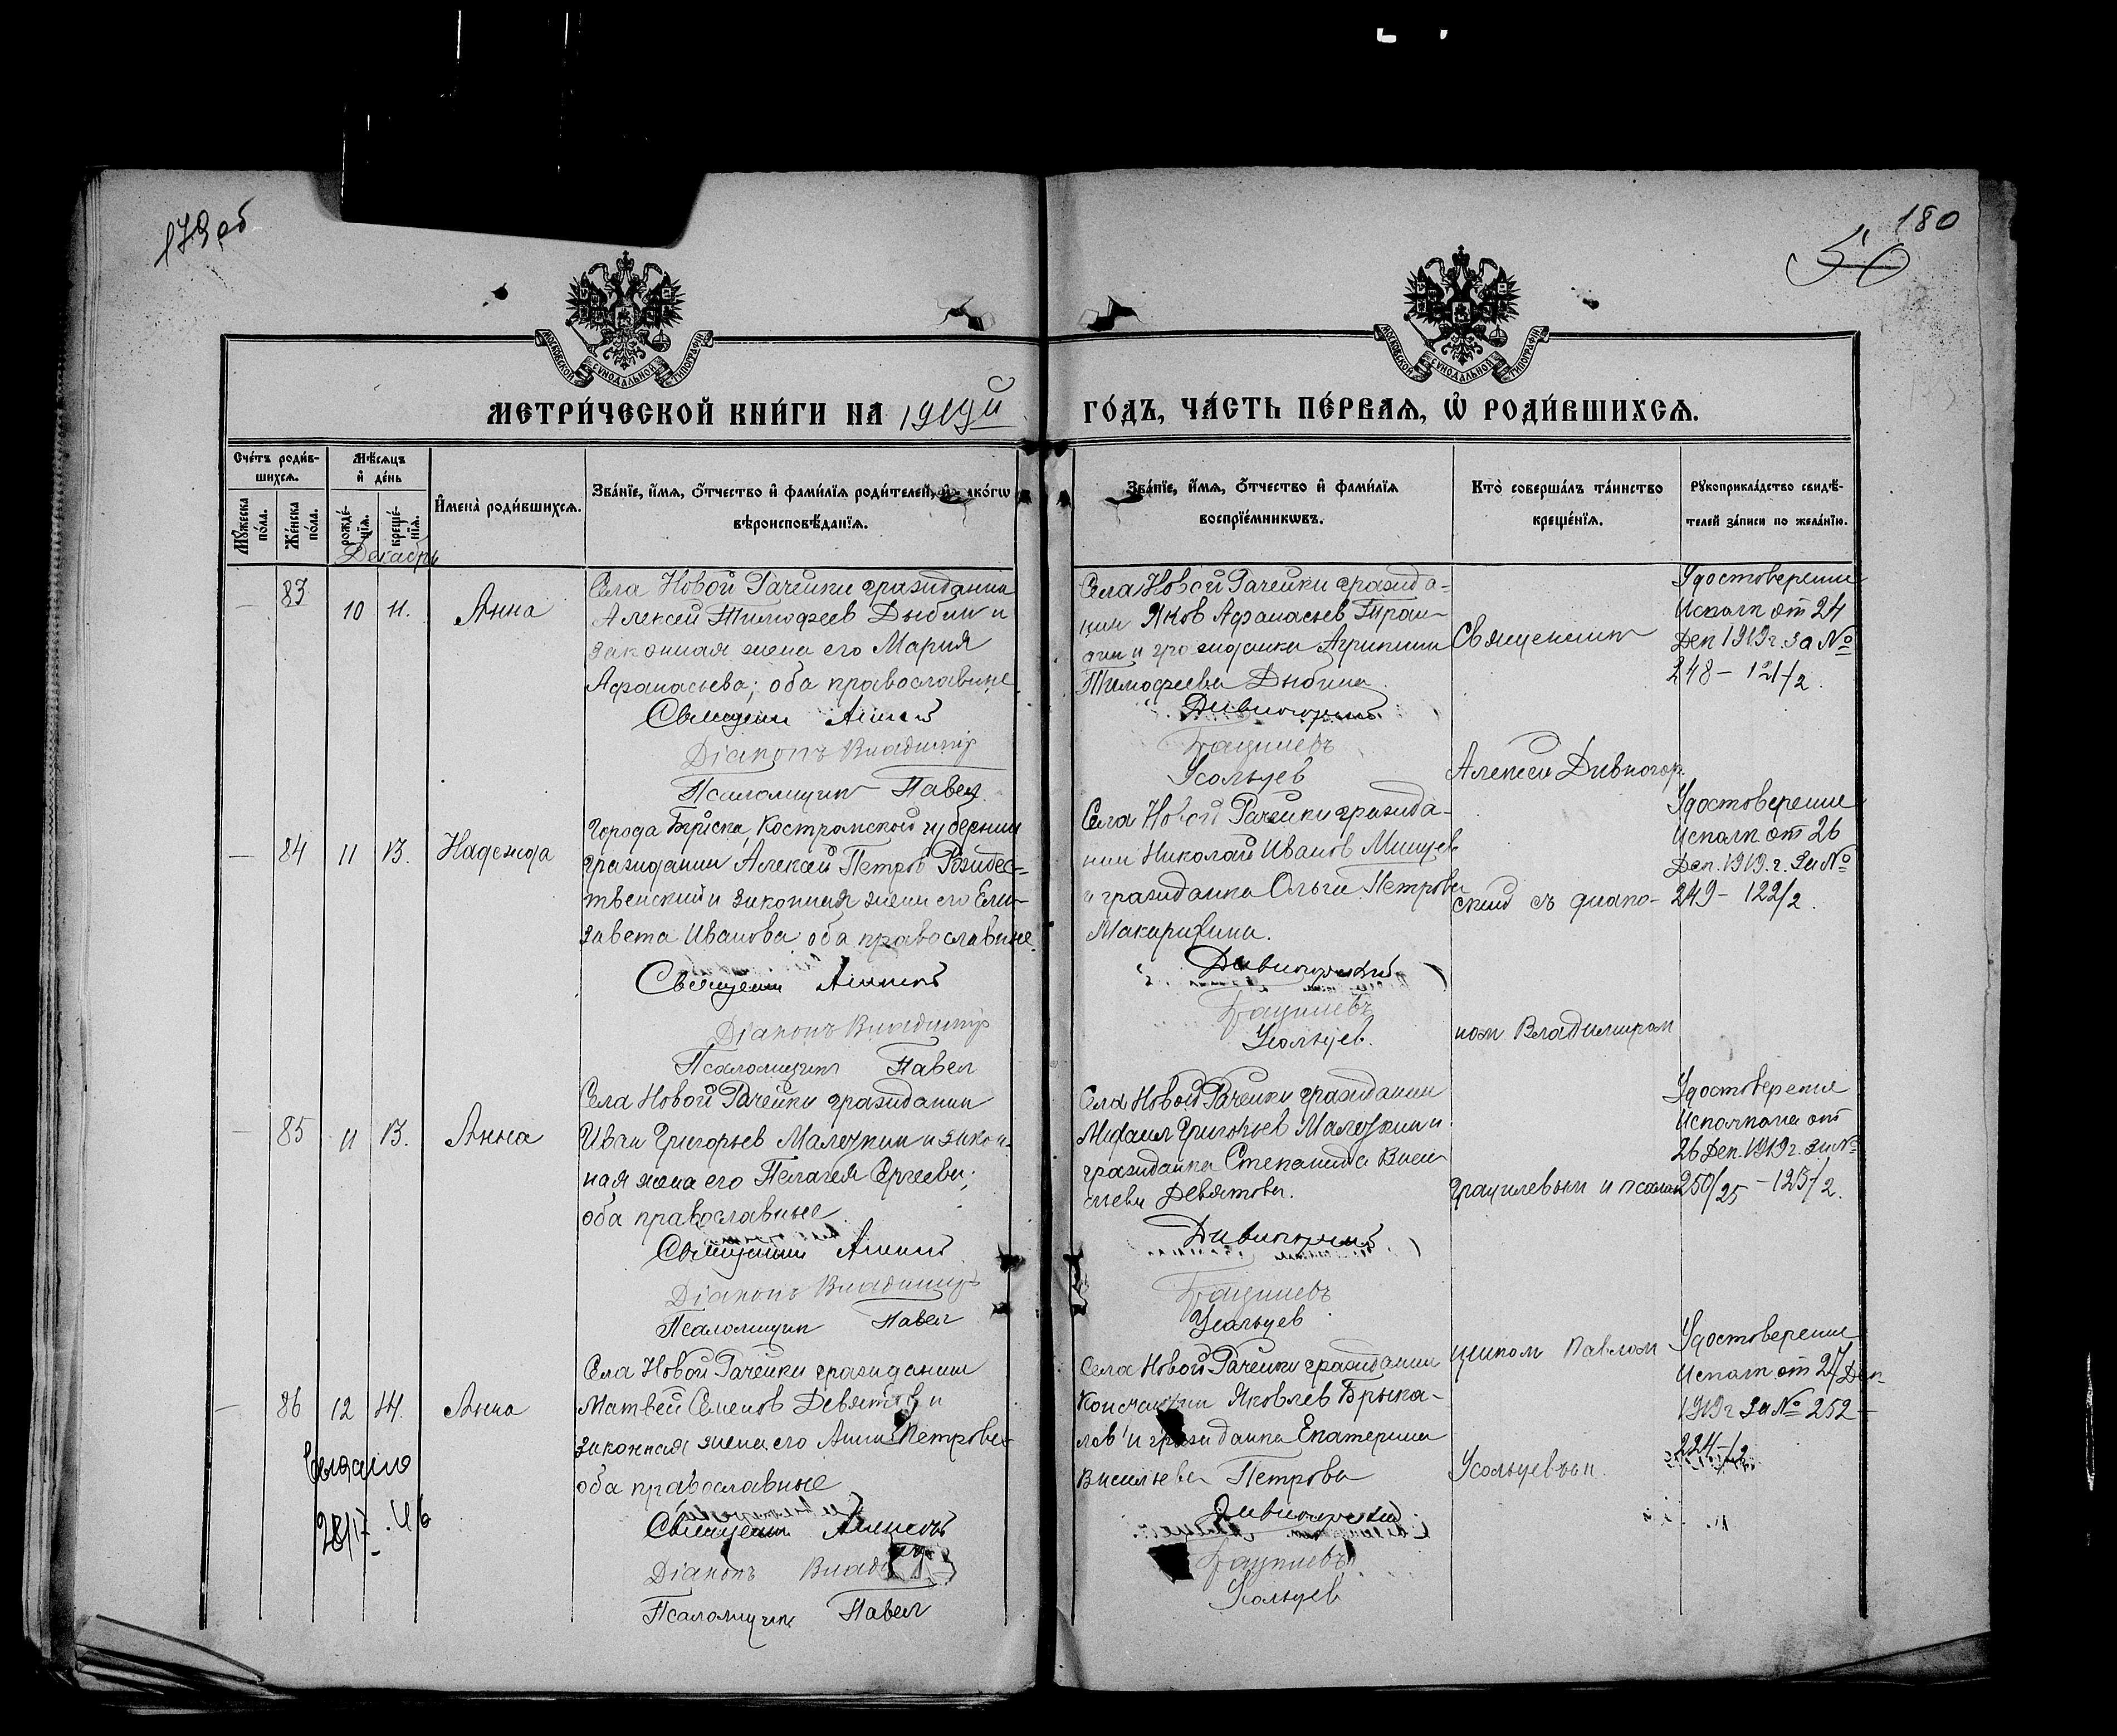 179 об
180
50
МОСКОВСКОЙ СУНОДАЛЬНОЙ ТИПОГРАФІИ
МОСКОВСКОЙ СУНОДАЛЬНОЙ ТИПОГРАФІИ
МЕТРИ́ЧЕСКОЙ КНИ́ГИ НА 1919й
ГО́ДЪ, ЧА́СТЬ ПЕ́РВАѦ, Ѿ РОДИ́ВШИХСѦ.
Сче́тъ роди́в-
шихсѧ.
Мѣ́сѧцъ
и҆ де́нь
Мꙋ́жеска по́ла.
Же́нска по́ла.
рожде́-
нїѧ.
креще́-
нїѧ.
И҆мена̀ роди́вшихсѧ.
Зва́нїе, и҆́мѧ, ѻ҆́тчество и҆ фами́лїѧ роди́телей, и҆ како́гѡ
вѣроисповѣ́данїѧ.
Зва́нїе, и҆́мѧ, ѻ҆́тчество и҆ фами́лїѧ
воспрїе́мникѡвъ.
Кто̀ соверша́лъ та́инство
креще́нїѧ.
Рꙋкоприкла́дство свидѣ́-
телей за́писи по жела́нїю.
Декабрь
83
10 11.
Анна
Села Новой Рачейки гражданин
Алексей Тимофеев Дыбин и
законная жена его Мария
Афанасьева; оба православные
Священн Алексей
Діаконъ Владимір
Псаломщик Павел
Села Новой Рачейки гражда-
нин Яков Афанасьев
и гражданка
Тимофеева Дыбина
Дивногорский
Усольцев
Священник
Удостоверение
Исполн от 24
Дек 1919г. за №
248 - 121/2.
Алексей Дивногор
84
11 13.
Надежда
Города Костромской губернии
гражданин Алексей Петров Рождес-
твенский и законная жена его Ели-
завета Иванова оба православные
Священн Алексей
Діаконъ Владимір
Псаломщик Павел
Села Новой Рачейки гражда-
нин Николай Иванов
и гражданка Ольга Петрова
Дивногорский
Усольцев.
ский съ диако-
ном Владимиром
Удостоверение
Исполн. от 26
Дек. 1919.г. За №
249 - 122/2.
85
11 13.
Анна
Села Новой Рачейки гражданин
Иван Григорьев Малезкин и закон-
ная жена его Пелагея Сергеева;
оба православные
Священн Алексей
Діаконъ Владимір
Псаломщик Павел
Села Новой Рачейки гражданин
Михаил Григорьев Малезкин и
гражданка Степанида Васи
льева Девятова.
Дивногорский
Усольцев
Грацилевым и псалом
щиком Павлом
Удостоверение
Исполкома от
26 Дек. 1919г. за №
250/25 - 123/2.
86
12 14.
Анна
Села Новой Рачейки гражданин
Матвей Семенов Девятов и
законная жена его Анна Петрова
оба православные
Священн Алексей
Діаконъ
Псаломщик Павел
Села Новой Рачейки гражданин
Константин Яковлев Брыка-
лов и гражданка Екатерина
Васильева Петрова
Дивногорский
Усольцев
Усольцевым.
Удостоверение
Исполн от 27 Дек
1919г За № 252 -
Выдано